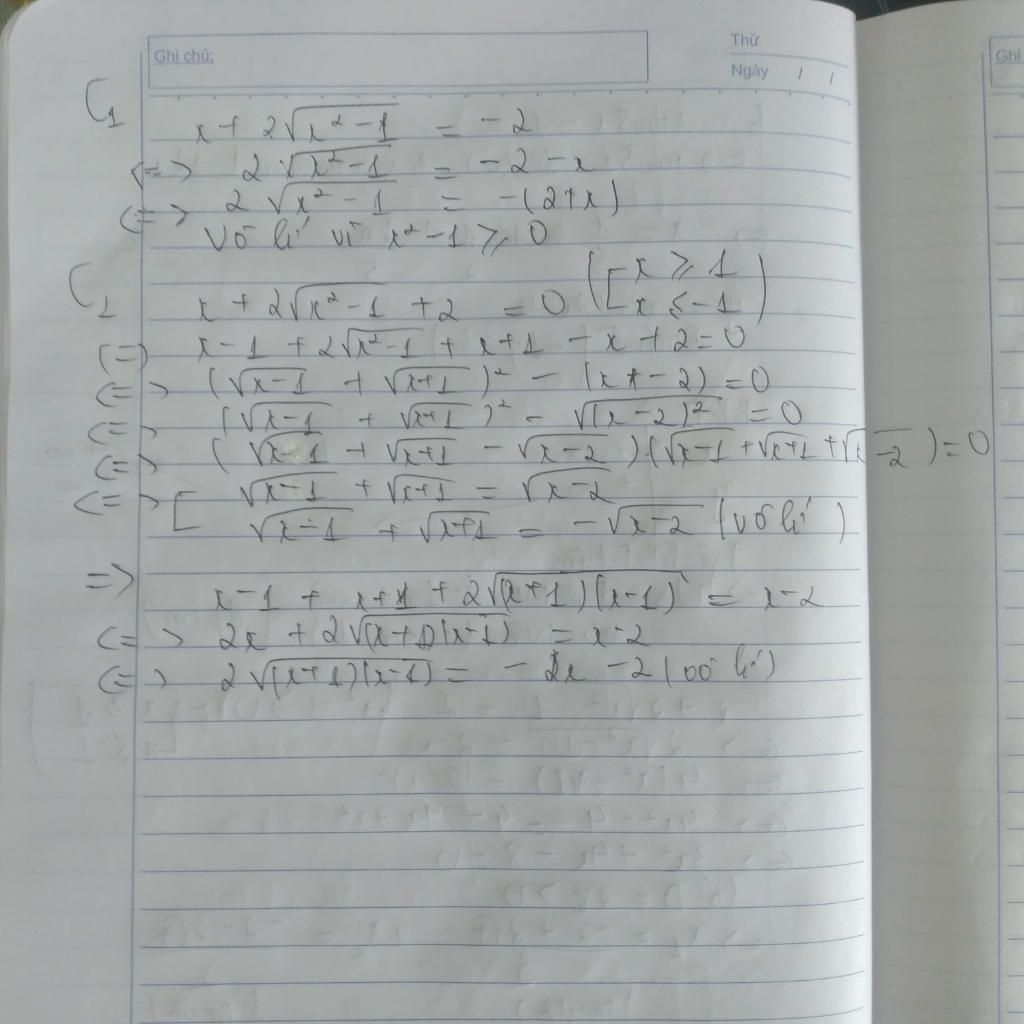 Ghi chú:
Thứ
Ngày / /
Ghi
C1
x + 2√(x² - 1) = -2
<=> 2√(x² - 1) = -2 - x
<=> 2√(x² - 1) = -(2+x)
Vô lí vì x² - 1 ≥ 0
C2
x + 2√(x² - 1) + 2 = 0 ([x ≥ 1
x ≤ -1)
<=> x - 1 + 2√(x² - 1) + x + 1 - x + 2 = 0
<=> (√(x-1) + √(x+1))² - (x - 2) = 0
<=> (√(x-1) + √(x+1))² - √((x-2)²) = 0
<=> (√(x-1) + √(x+1) - √(x-2))(√(x-1) + √(x+1) + √(x-2)) = 0
<=> [ √(x-1) + √(x+1) = √(x-2)
√(x-1) + √(x+1) = -√(x-2) (vô lí)
=> x - 1 + x + 1 + 2√((x+1)(x-1)) = x - 2
<=> 2x + 2√((x+1)(x-1)) = x - 2
<=> 2√((x+1)(x-1)) = - x - 2 (vô lí)